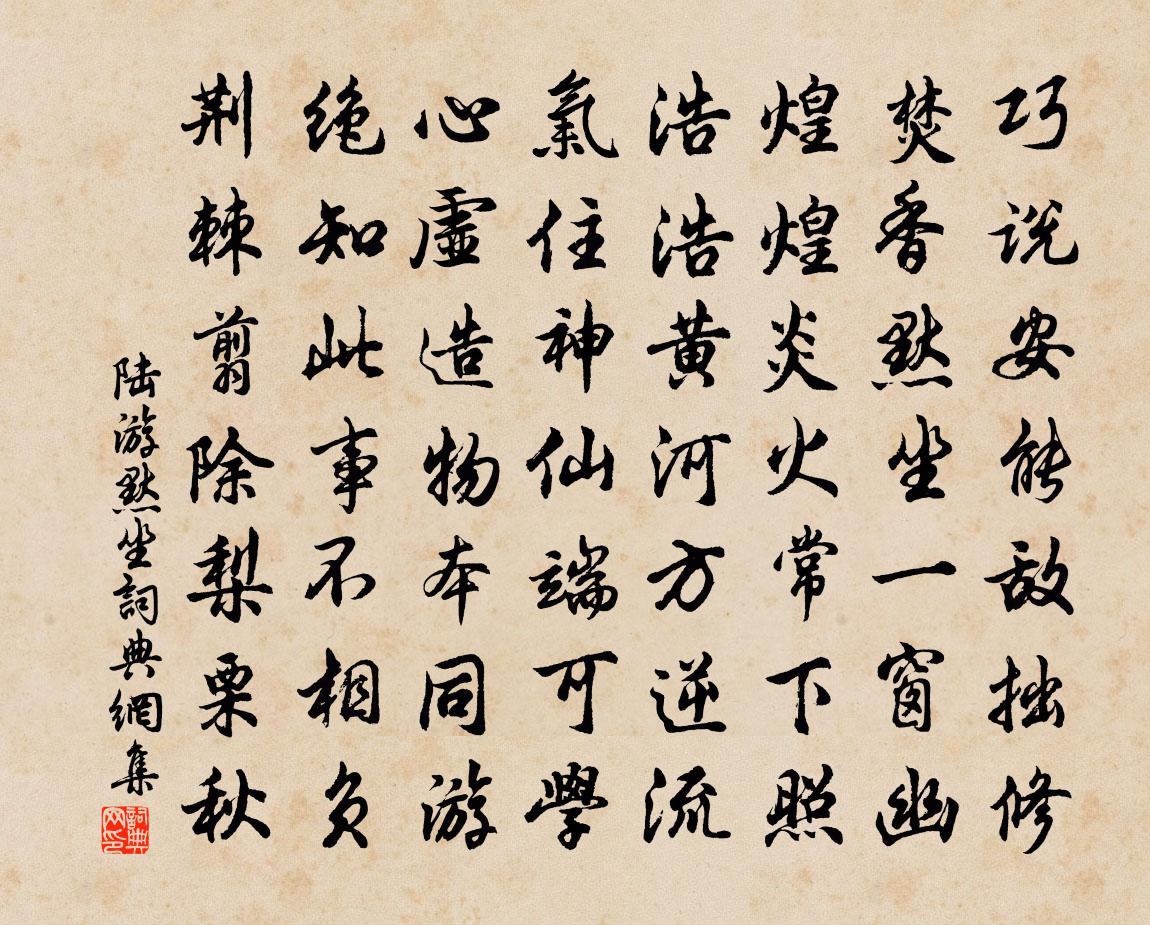 巧说安能敌拙修
焚香默坐一窗幽
煌煌炎火常下照
浩浩黄河方逆流
氣住神仙端可學
心虚造物本同游
绝知此事不相负
荆棘翦除梨栗秋
陆游默坐詞典網集
詞典网印